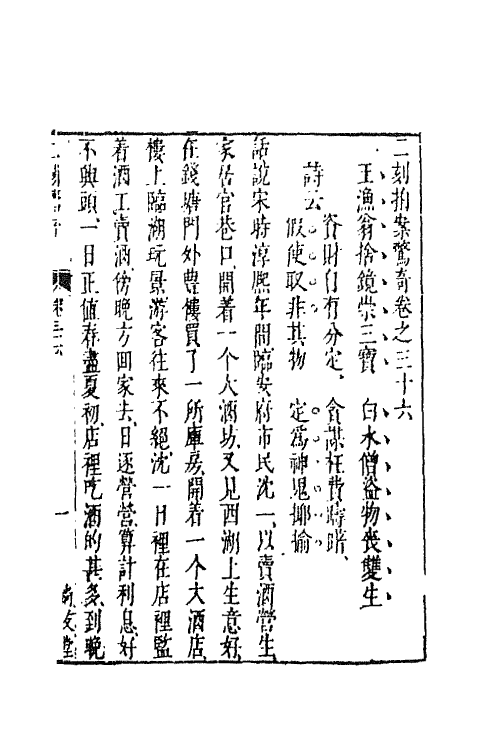 二刻拍案驚奇卷之三十六
王漁翁捨鏡崇三寶　白水僧盜物喪雙生
詩云
資財自有分定、貪謀枉費躊躇、
假使取非其物　定爲神鬼揶揄
話說宋時淳熙年間臨安府市民沈一以賣酒營生
家居官巷口開着一个大酒坊又見西湖上生意好
在錢塘門外豊樓買了一所庫房開着一个大酒店
樓上臨湖玩景游客往來不絕沈一日裡在店裡監
着酒工賣酒傍晚方回家去日逐營營算計利息好
不興頭一日正値春盡夏初店裡吃酒的甚多到晚
卷三十六
一
尚友堂